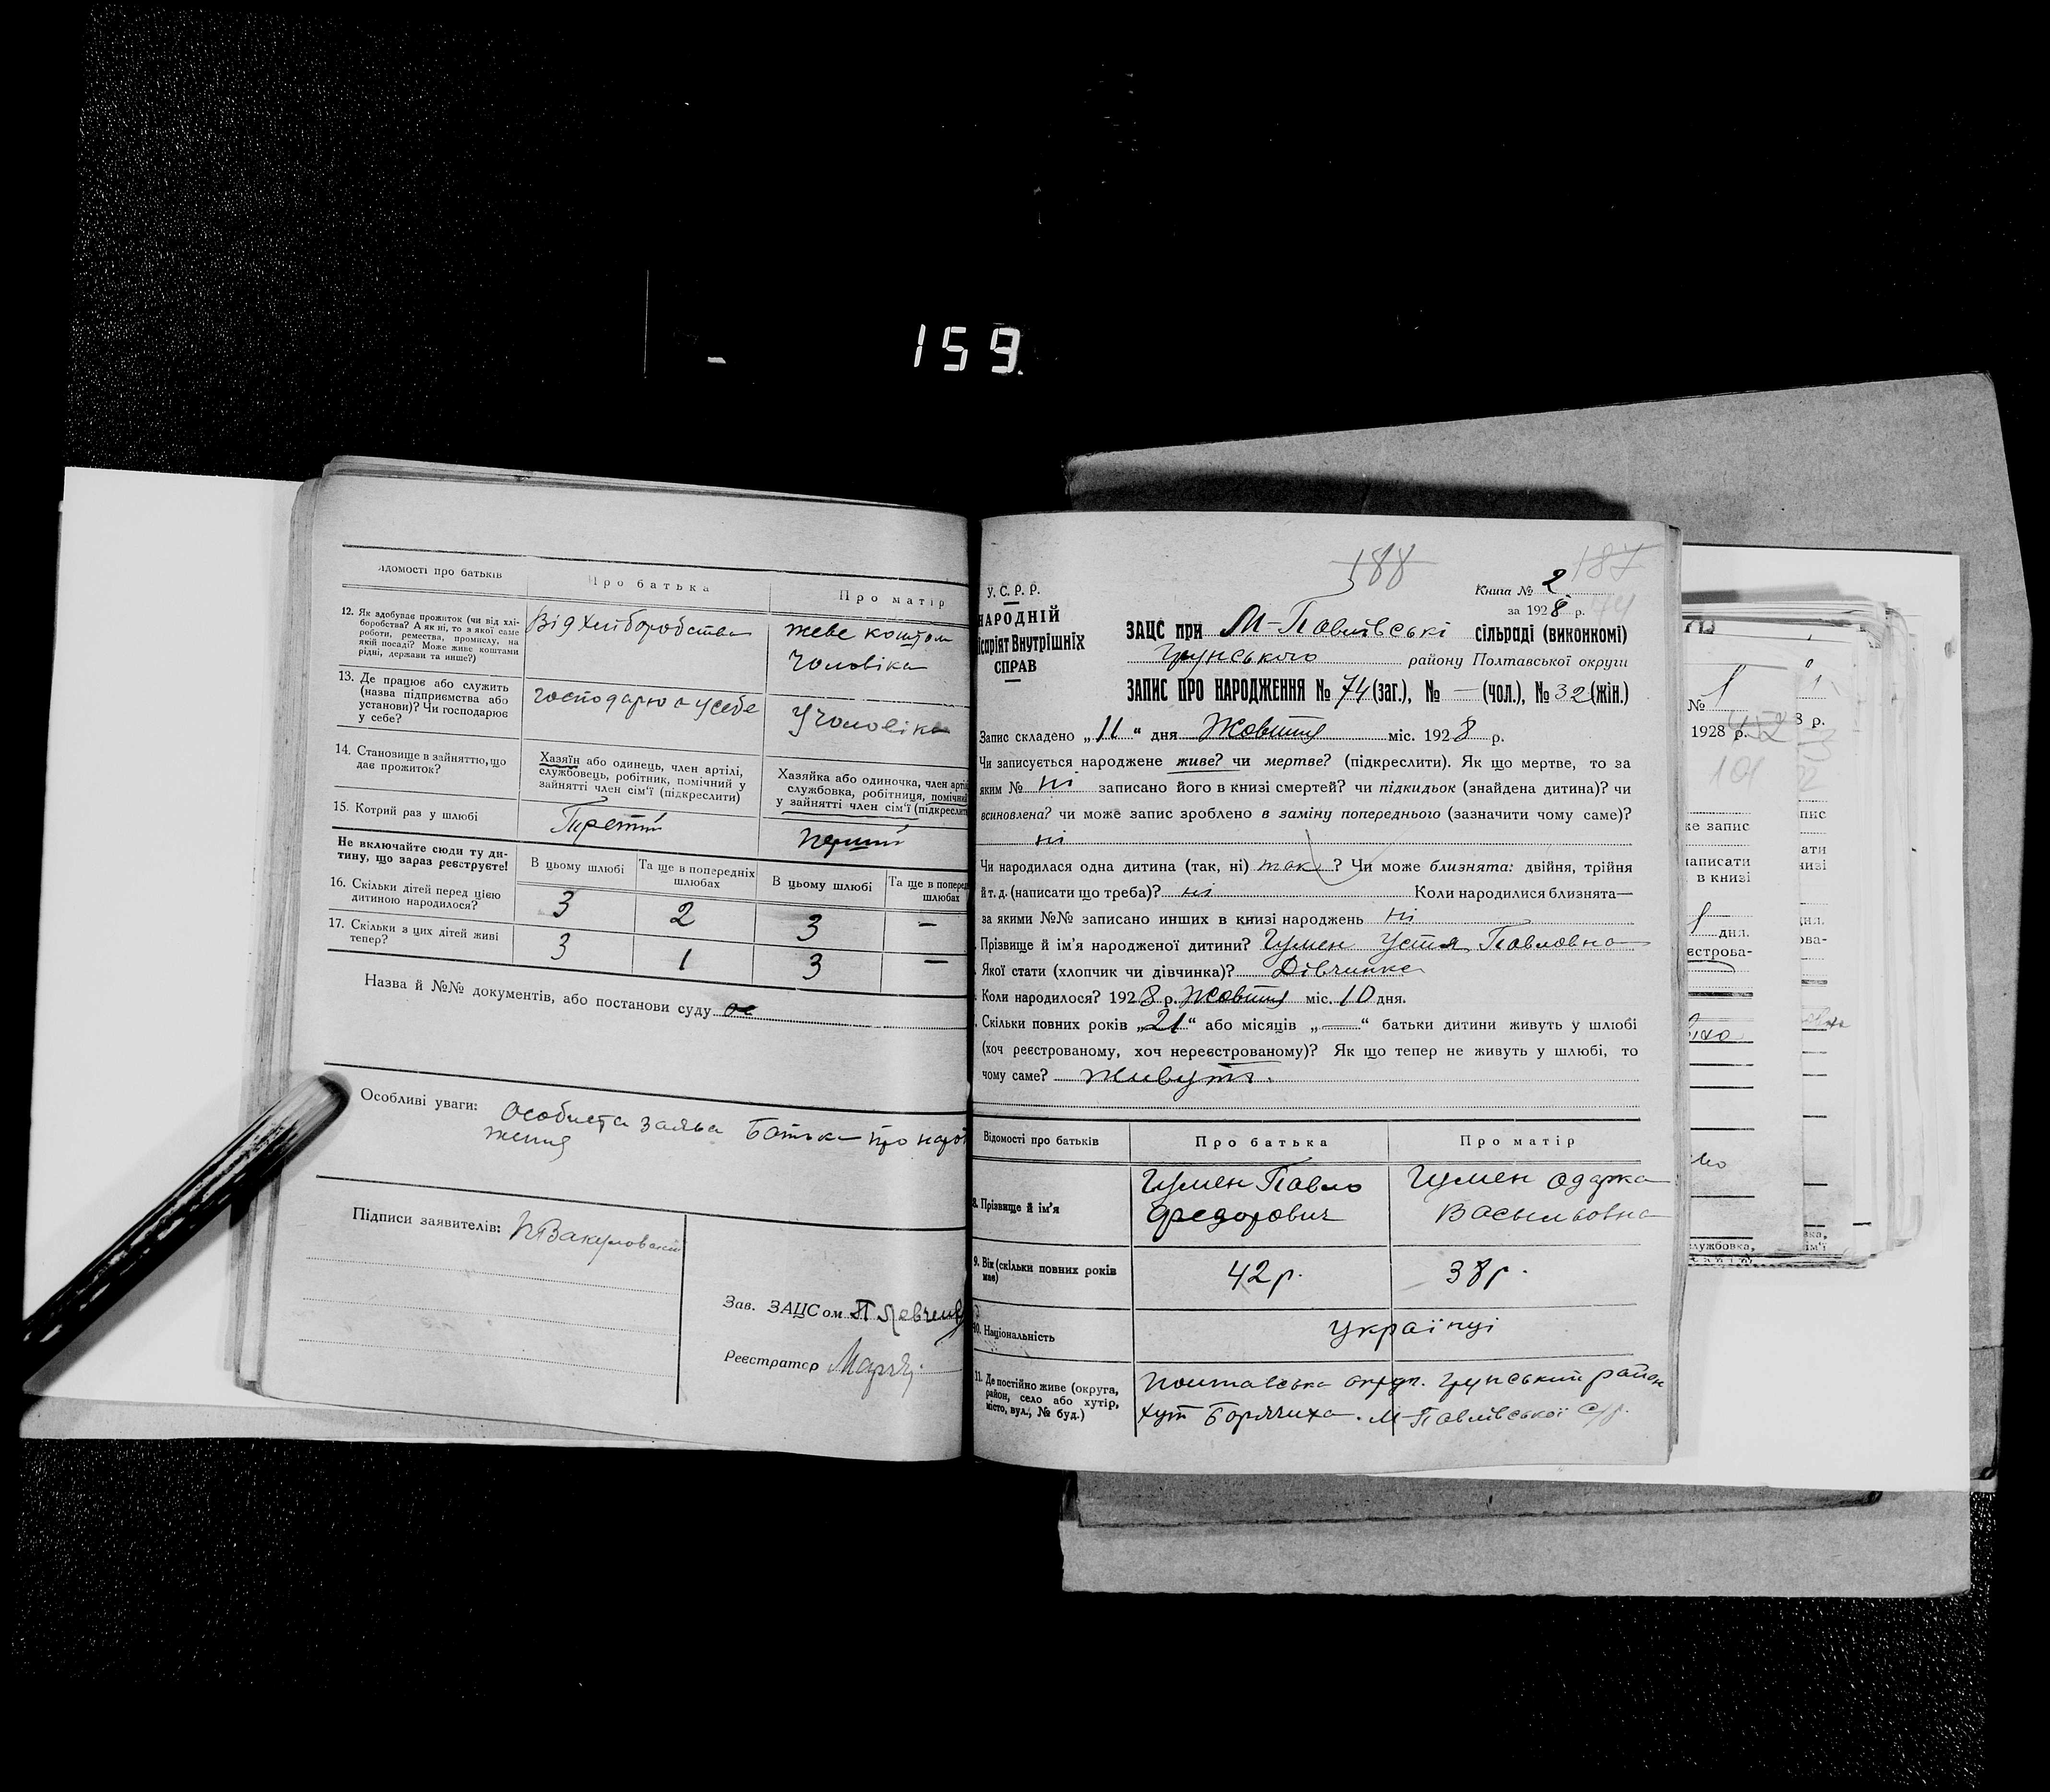 159.
відомості про батьків
Про батька
Про матір
12. Як здобуває прожиток (чи від хлі-
боробства? А як ні, то з якої саме
роботи, ремества, промислу, на
якій посаді? Може живе коштами
рідні, держави та инше?)
Від хліборобства
живе коштом
чоловіка
13. Де працює або служить
(назва підприємства або
установи)? Чи господарює
у себе?
господарює у себе
У чоловіка
14. Становище в зайняттю, що
дає прожиток?
Хазяїн або одинець, член артілі,
службовець, робітник, помічний у
зайнятті член сім'ї (підкреслити)
Хазяйка або одиночка, член артіл
службовка, робітниця, помічний
у зайнятті член сім'ї (підкреслит
15. Котрий раз у шлюбі
Третій
перший
Не включайте сюди ту ди-
тину, що зараз реєструєте!
В цьому шлюбі
Та ще в попередніх
шлюбах
В цьому шлюбі
Та ще в поперед
шлюбах
16. Скільки дітей перед цією
дитиною народилося?
3 2 3 —
17. Скільки з цих дітей живі
тепер?
3 1 3 —
Назва й №№ документів, або постанови суду
Особливі уваги: Особиста заява Батька про народ
ження
Підписи заявителів:
Зав. ЗАЦСом П Левченко
Реєстратор
188
187
У. С. Р. Р.
НАРОДНІЙ
ісаріят Внутрішніх
СПРАВ
Книга № 2
за 1928 р.
ЗАЦС при М-Павлівські сільраді (виконкомі)
Грунського району Полтавської округи
ЗАПИС ПРО НАРОДЖЕННЯ № 74 (заг.), № — (чол.), № 32 (жін.)
Запис складено „11" дня Жовтня міс. 1928 р.
Чи записується народжене живе? чи мертве? (підкреслити). Як що мертве, то за
яким № ні записано його в книзі смертей? чи підкидьок (знайдена дитина)? чи
всиновлена? чи може запис зроблено в заміну попереднього (зазначити чому саме)?
ні
Чи народилася одна дитина (так, ні) так? Чи може близнята: двійня, трійня
й т. д. (написати що треба)? ні Коли народилися близнята—
за якими №№ записано инших в книзі народжень ні
Прізвище й ім'я народженої дитини? Гумен Устя Павловна
Якої стати (хлопчик чи дівчинка)? Дівчинка
Коли народилося? 1928 р. Жовтня міс. 10 дня.
Скільки повних років „21" або місяців „—" батьки дитини живуть у шлюбі
(хоч реєстрованому, хоч нереєстрованому)? Як що тепер не живуть у шлюбі, то
чому саме? Живуть.
Відомості про батьків
Про батька
Про матір
8. Прізвище й ім'я
Гумен Павло
Федорович
Гумен Одарка
Васильовна
9. Вік (скільки повних років
має)
42 р.
38 р.
10. Національність
Українці
11. Де постійно живе (округа,
район, село або хутір,
місто, вул., № буд.)
Полтавська округ. Грунський район
хут Борячиха. М-Павлівської с/р.
№ 1
1928 р.
8 р.
же запис
написати
в книзі
дня.
єстрова-
службовка,